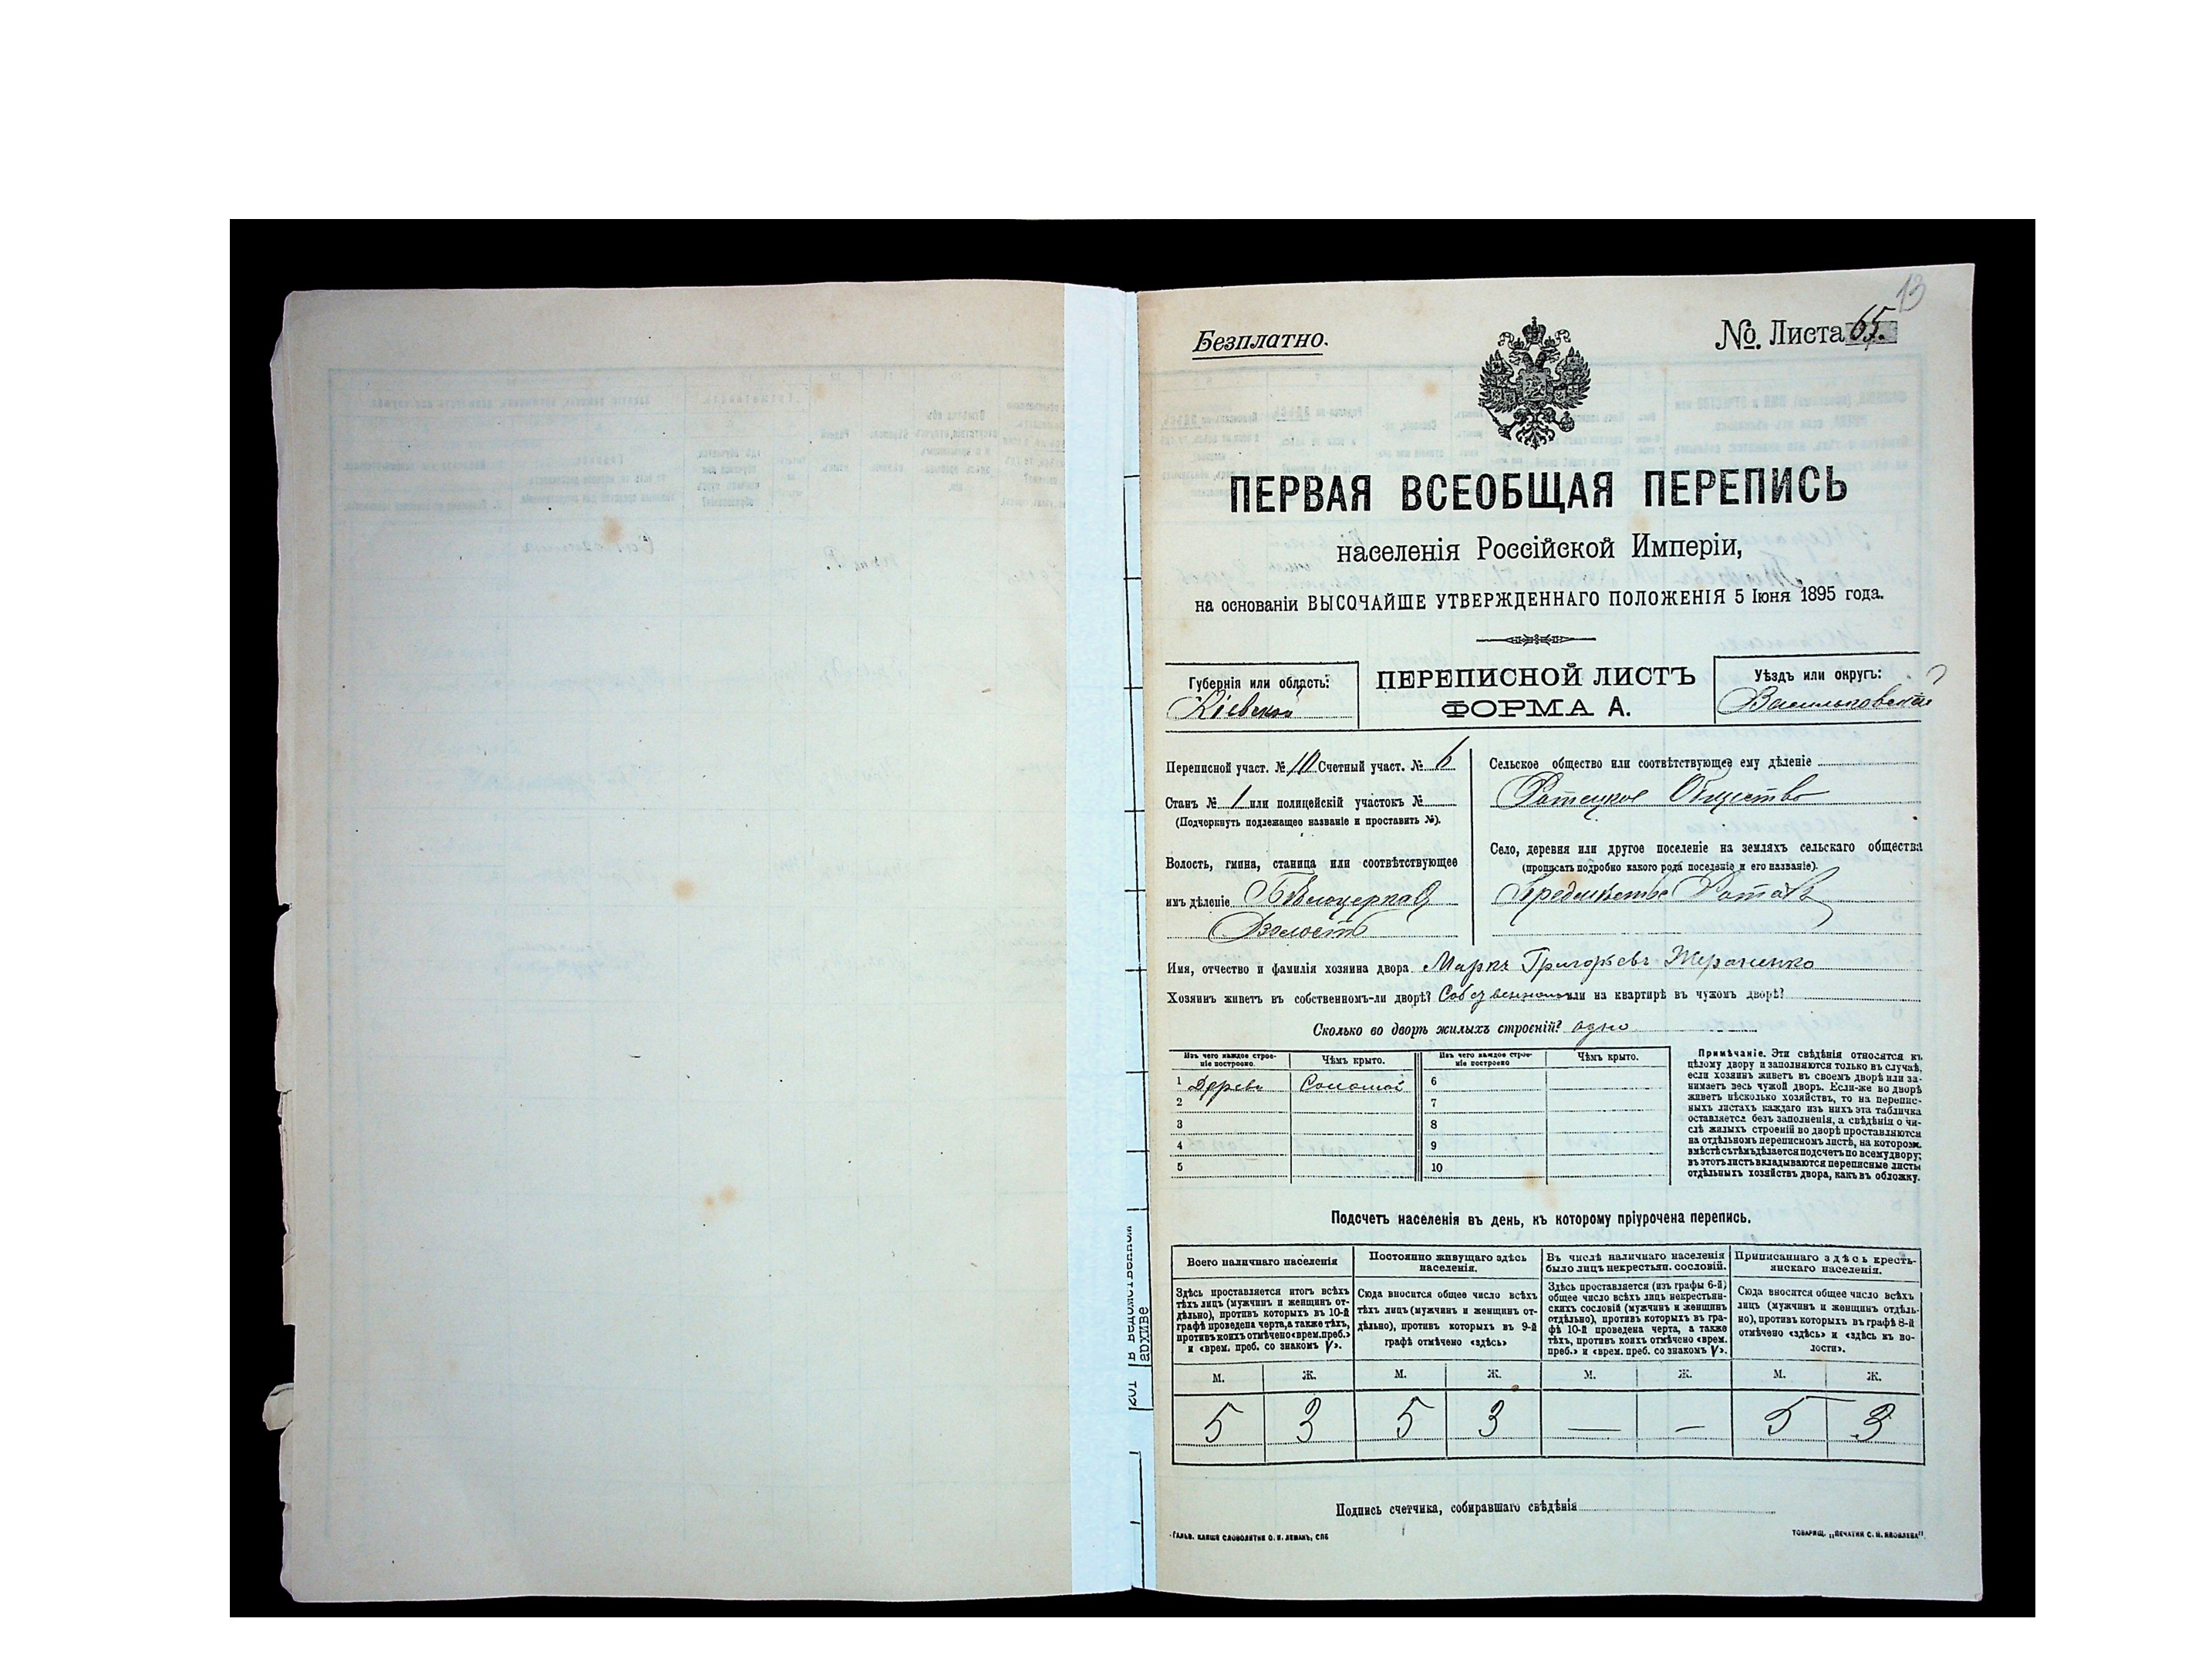 13
Безплатно.
№. Листа 65.
ПЕРВАЯ ВСЕОБЩАЯ ПЕРЕПИСЬ
населенія Россійской Имперіи,
на основаніи ВЫСОЧАЙШЕ УТВЕРЖДЕННАГО ПОЛОЖЕНІЯ 5 Іюня 1895 года.
Губернія или область:
Кіевская
ПЕРЕПИСНОЙ ЛИСТЪ
ФОРМА А.
Уѣздъ или округъ:
Васильковскій
Переписной участ. № 10 Счетный участ. № 6
Станъ № 1 или полицейскій участокъ №
(Подчеркнуть подлежащее названіе и проставить №).
Волость, гмина, станица или соотвѣтствующее
имъ дѣленіе Бѣлоцерков
Волость
Сельское общество или соотвѣтствующее ему дѣленіе
Общество
Село, деревня или другое поселеніе на земляхъ сельскаго общества
(прописать подробно какого рода поселеніе и его названіе).
Предмѣстье
Имя, отчество и фамилія хозяина двора Маркъ Григорьевъ
Хозяинъ живетъ въ собственномъ-ли дворѣ? или на квартирѣ въ чужомъ дворѣ?
Сколько во дворѣ жилыхъ строеній? одно
Изъ чего каждое строе-
ніе построено.
Чѣмъ крыто.
Изъ чего каждое строе-
ніе построено
Чѣмъ крыто.
1 Дерева Соломой 6
2 7
3 8
4 9
5 10
Примѣчаніе. Эти свѣдѣнія относятся къ
цѣлому двору и заполняются только въ случаѣ,
если хозяинъ живетъ въ своемъ дворѣ или за-
нимаетъ весь чужой дворъ. Если-же во дворѣ
живетъ нѣсколько хозяйствъ, то на перепис-
ныхъ листахъ каждаго изъ нихъ эта табличка
оставляется безъ заполненія, а свѣдѣнія о чи-
слѣ жилыхъ строеній во дворѣ проставляются
на отдѣльномъ переписномъ листѣ, на которомъ
вмѣстѣ съ тѣмъ дѣлается подсчетъ по всему двору;
въ этотъ листъ вкладываются переписные листы
отдѣльныхъ хозяйствъ двора, какъ въ обложку.
Подсчетъ населенія въ день, къ которому пріурочена перепись.
Всего наличнаго населенія
Здѣсь проставляется итогъ всѣхъ
тѣхъ лицъ (мужчинъ и женщинъ от-
дѣльно), противъ которыхъ въ 10-й
графѣ проведена черта, а также тѣхъ,
противъ коихъ отмѣчено «врем. преб.»
и «врем. преб. со знакомъ V».
Постоянно живущаго здѣсь
населенія.
Сюда вносится общее число всѣхъ
тѣхъ лицъ (мужчинъ и женщинъ от-
дѣльно), противъ которыхъ въ 9-й
графѣ отмѣчено «здѣсь»
Въ числѣ наличнаго населенія
было лицъ некрестьян. сословій.
Здѣсь проставляется (изъ графы 6-й)
общее число всѣхъ лицъ некрестьян-
скихъ сословій (мужчинъ и женщинъ
отдѣльно), противъ которыхъ въ гра-
фѣ 10-й проведена черта, а также
тѣхъ, противъ коихъ отмѣчено «врем.
преб.» и «врем. преб. со знакомъ V».
Приписаннаго здѣсь кресть-
янскаго населенія.
Сюда вносится общее число всѣхъ
лицъ (мужчинъ и женщинъ отдѣль-
но), противъ которыхъ въ графѣ 8-й
отмѣчено «здѣсь» и «здѣсь къ во-
лости».
М. Ж. М. Ж. М. Ж. М. Ж.
5 3 5 3 — — 5 3
Подпись счетчика, собиравшаго свѣдѣнія
ГАЛЬВ. КЛИШЕ СЛОВОЛИТНИ О. И. ЛЕМАНЪ, СПБ
ТОВАРИЩ. „ПЕЧАТНИ С. П. ЯКОВЛЕВА“.
201
в ведомственном
архиве